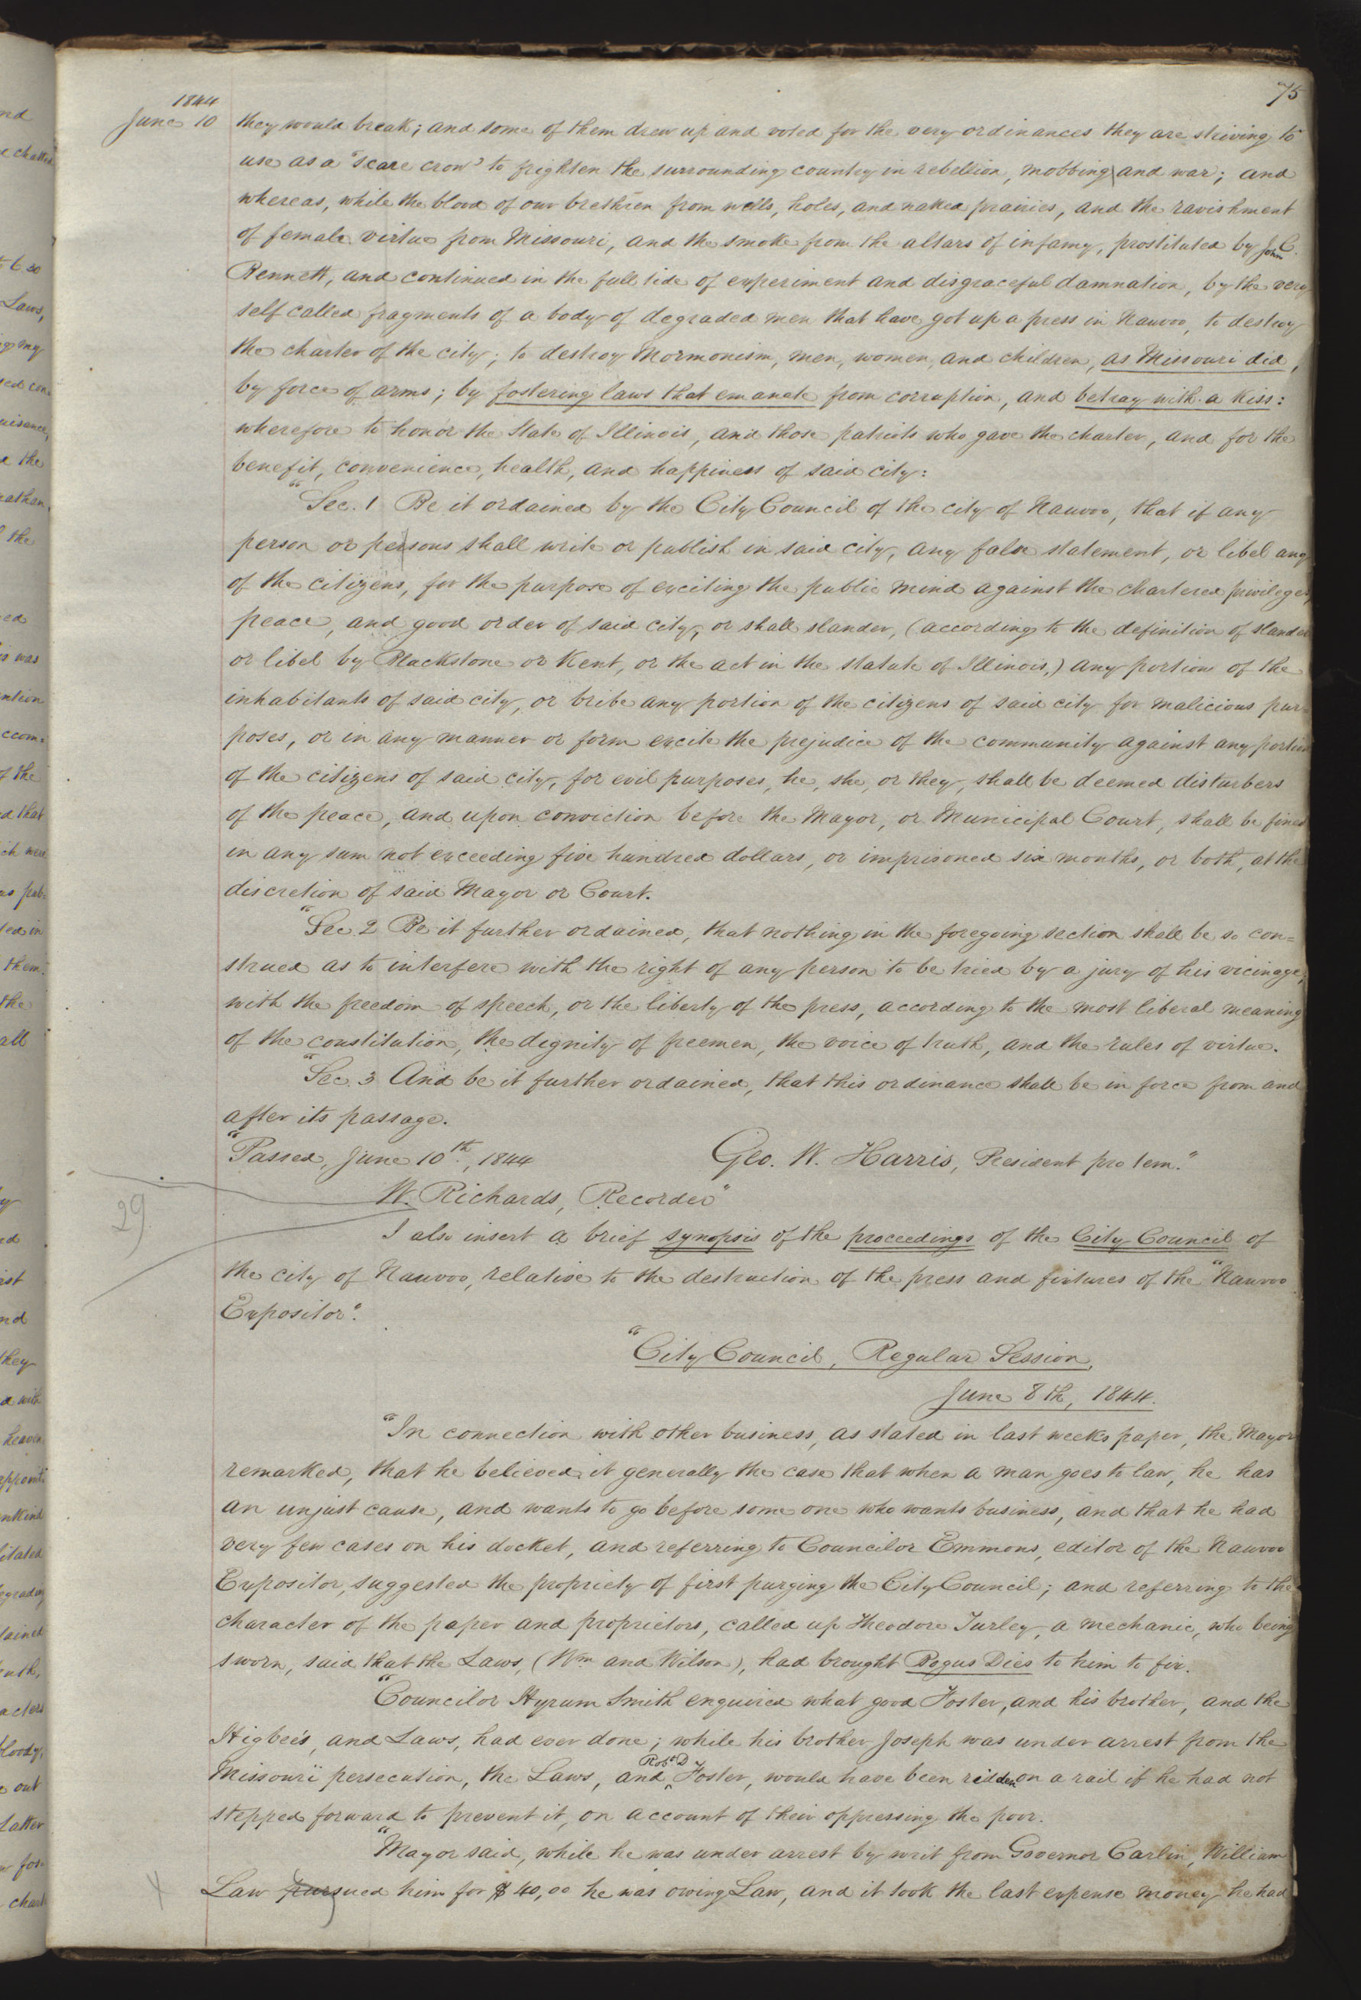 75
1844
June 10 they would break; and some of them drew up and voted for the very ordinances they are striving to
use as a "scare crow" to frighten the surrounding country in rebellion, mobbing and war; and
whereas, while the blood of our brethren from wells, holes, and naked prairies, and the ravishment
of female virtue from Missouri, and the smoke from the altars of infamy, prostituted by John C.
Bennett, and continued in the full tide of experiment and disgraceful damnation, by the very
self called fragments of a body of degraded men that have got up a press in Nauvoo, to destroy
the charter of the city; to destroy Mormonism, men, women, and children, as Missouri did,
by force of arms; by fostering laws that emanate from corruption, and betray with a kiss:
wherefore to honor the State of Illinois, and those patriots who gave the charter, and for the
benefit, convenience, health, and happiness of said city:
"Sec. 1 Be it ordained by the City Council of the city of Nauvoo, that if any
person or persons shall write or publish in said city, any false statement, or libel any
of the citizens, for the purpose of exciting the public mind against the chartered privileges,
peace, and good order of said city, or shall slander, (according to the definition of slander
or libel by Blackstone or Kent, or the act in the statute of Illinois,) any portion of the
inhabitants of said city, or bribe any portion of the citizens of said city for malicious pur-
poses, or in any manner or form excite the prejudice of the community against any portion
of the citizens of said city, for evil purposes, he, she, or they, shall be deemed disturbers
of the peace, and upon conviction before the Mayor, or Municipal Court, shall be fined
in any sum not exceeding five hundred dollars, or imprisoned six months, or both, at the
discretion of said Mayor or Court.
"Sec. 2 Be it further ordained, that nothing in the foregoing section shall be so con=
strued as to interfere with the right of any person to be tried by a jury of his vicinage;
with the freedom of speech, or the liberty of the press, according to the most liberal meaning
of the constitution, the dignity of freemen, the voice of truth, and the rules of virtue.
"Sec. 3 And be it further ordained, that this ordinance shall be in force from and
after its passage.
"Passed, June 10th, 1844 Geo. W. Harris, President pro tem."
W. Richards, Recorder"
29
I also insert a brief synopsis of the proceedings of the City Council of
the city of Nauvoo, relative to the destruction of the press and fixtures of the "Nauvoo
Expositor".
"City Council, Regular Session,
June 8th, 1844.
"In connection with other business, as stated in last weeks paper, the Mayor
remarked, that he believed it generally the case that when a man goes to law, he has
an unjust cause, and wants to go before some one who wants business, and that he had
very few cases on his docket, and referring to Councilor Emmons, editor of the Nauvoo
Expositor, suggested the propriety of first purging the City Council; and referring to the
character of the paper and proprietors, called up Theodore Turley, a mechanic, who being
sworn, said that the Laws, (Wm and Wilson), had brought Bogus Dies to him to fix.
"Councilor Hyrum Smith enquired what good Foster, and his brother, and the
Higbee's, and Laws, had ever done; while his brother Joseph was under arrest from the
Missouri persecution, the Laws, and Robt D. Foster, would have been ridden on a rail if he had not
stepped forward to prevent it, on account of their oppressing the poor.
"Mayor said, while he was under arrest by writ from Governor Carlin, William
Law pursued him for $40,00 he was owing Law, and it took the last expense money he had